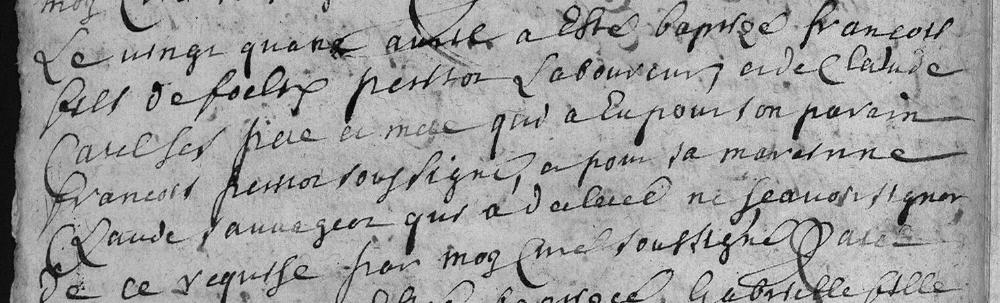 Le vingt quatre avril a Esté baptizé françois
fils de foelix perrot Laboureur, et de Claude
Carel ses pere et mere qui a Eu pour son parain
françois perrot soussigné, et pour sa maraine
Claude sauvageot qui a declaré ne scavoir signer
de ce requise par moy Curé soussigné
baptizée Gabrielle fille